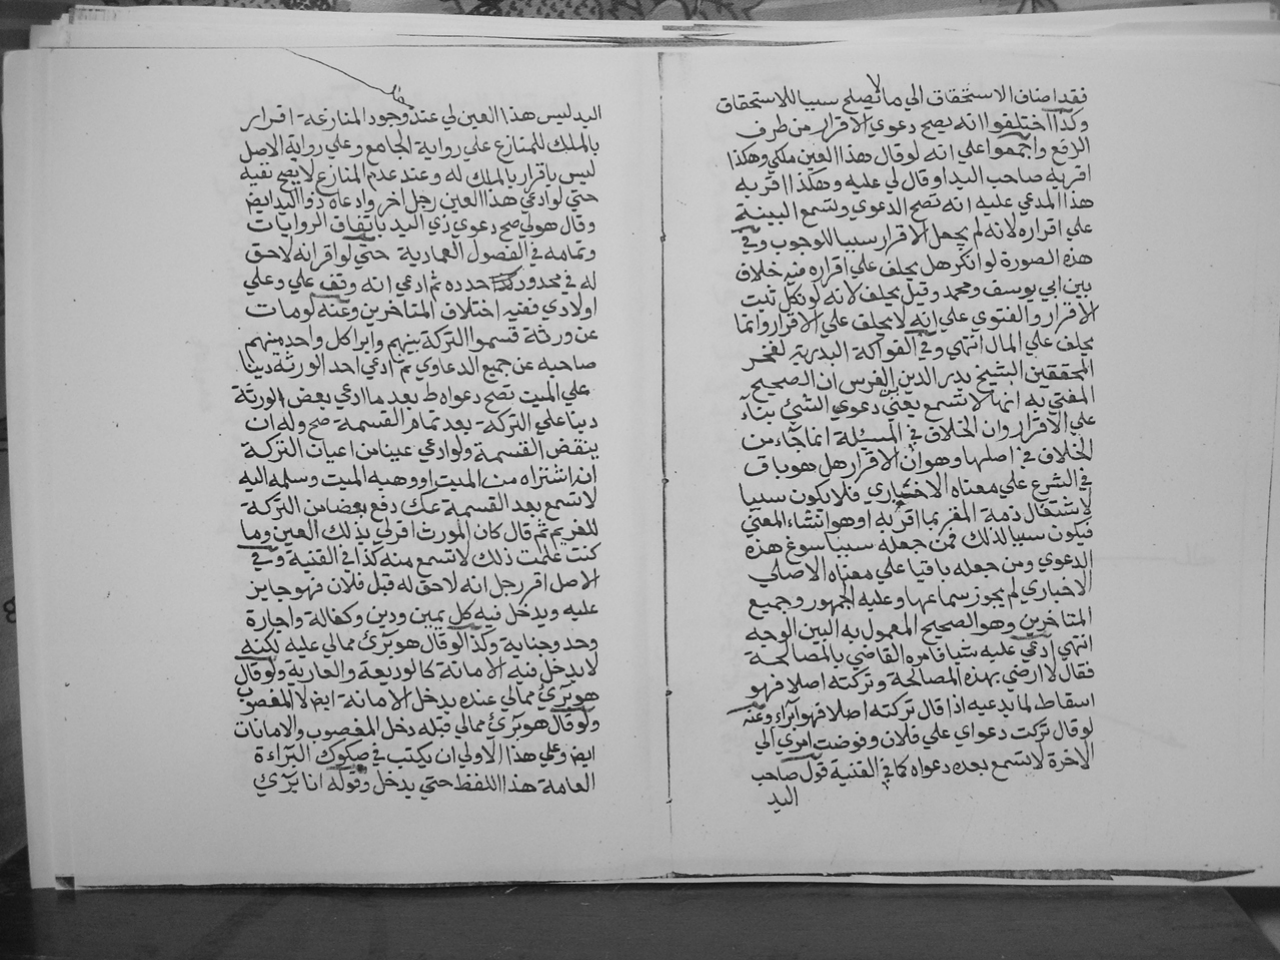 فقد اضاف الاستحقاق الي ما لا يصلح سببا للاستحقاق
وكذا اختلفوا انه يصح دعوي الاقرار من طرف
الدفع واجمعوا علي انه لو قال هذا العين ملكي وهكذا
اقر به صاحب اليد او قال لي عليه وهكذا اقر به
هذا المدعي عليه انه تصح الدعوي وتسمع البينة
علي اقراره لانه لم يجعل الاقرار سببا للوجوب وفي
هذه الصورة لو انكر هل يحلف علي اقراره فيه خلاف
بين ابي يوسف ومحمد وقيل يحلف لانه لو نكل ثبت
الاقرار والفتوي علي انه لا يحلف علي الاقرار وانما
يحلف علي المال انتهي وفي الفواكة البدرية لفخر
المحققين الشيخ بدر الدين بن الفرس ان الصحيح
المفتي به انها لا تسمع يعني دعوي الشئ بناء
علي الاقرار وان الخلاف في المسئلة انما جاء من
الخلاف في اصلها وهو ان الاقرار هل هو باق
في الشرع علي معناه الاخباري فلا يكون سببا
لاشتغال ذمة المقر بما اقر به او هو انشاء المعني
فيكون سببا لذلك فمن جعله سببا سوغ هذه
الدعوي ومن جعله باقيا علي معناه الاصلي
الاخباري لم يجوز سماعها وعليه الجمهور وجميع
المتاخرين وهو الصحيح المعمول به البين الوجه
انتهي ادعي عليه شيا فامره القاضي بالمصالحة
فقال لا ارضي بهذه المصالحة وتركته اصلا فهو
اسقاط لما يدعيه اذا قال تركته اصلا فهو ابراء وعنه
لو قال تركت دعواي علي فلان وفوضت امري الي
الاخرة لا تسمع بعده دعواه كما في القنية قول صاحب
اليد
اليد ليس هذا العين لي عند وجود المنازعة اقرار
بالملك للمنازع علي رواية الجامع وعلي رواية الاصل
ليس باقرار بالملك له وعند عدم المنازع لا يصح نفيه
حتي لو ادعي هذا العين رجل اخر وادعاه ذو اليد ايض
وقال هو لي صح دعوي ذي اليد باتفاق الروايات
وتمامه في الفصول العمادية حتي لو اقر انه لا حق
له في محدود كذا حدده ثم ادعي انه وقف علي وعلي
اولادي ففيه اختلاف المتاخرين وعنه لو مات
عن ورثة قسموا التركة بينهم وابرا كل واحد منهم
صاحبه عن جميع الدعاوي ثم ادعي احد الورثة دينا
علي الميت تصح دعواه ط بعد ما ادعي بعض الورثة
دينا علي التركة بعد تمام القسمة صح وله ان
ينقض القسمة ولو ادعي عينا من اعيان التركة
انه اشتراه من الميت او وهبه الميت وسلمه اليه
لا تسمع بعد القسمة عك دفع بعضا من التركة
للغريم ثم قال كان المورث اقر لي بذلك العين وما
كنت علمت ذلك لا تسمع منه كذا في القنية وفي
الاصل اقر رجل انه لا حق له قبل فلان فهو جايز
عليه ويدخل فيه كل يمين ودين وكفالة واجارة
وحد وجناية وكذا لو قال هو برئ مما لي عليه لكنه
لا يدخل فيه الامانة كالوديعة والعارية ولو قال
هو برئ مما لي عنده يدخل الامانة ايض لا المغصوب
ولو قال هو برئ مما لي قبله دخل المغصوب والامانات
ايض وعلي هذا الاولي ان يكتب في صكوك البراءة
العامة هذا اللفظ حتي يدخل وقوله انا برئ